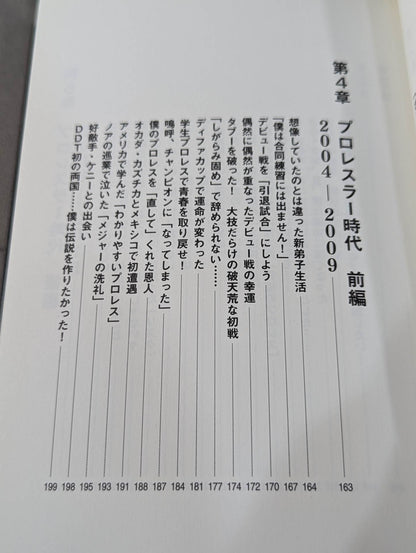 第4章 プロレスラー時代 前編
2004―2009 163
想像していたのとは違った新弟子生活 164
「僕は合同練習には出ません!」 167
デビュー戦を「引退試合」にしよう 170
偶然に偶然が重なったデビュー戦の幸運 172
タブーを破った! 大技だらけの破天荒な初戦 174
「しがらみ固め」で辞められない…… 177
ディファカップで運命が変わった 181
学生プロレスで青春を取り戻せ! 184
嗚呼、チャンピオンに「なってしまった」 187
僕のプロレスを「直して」くれた恩人 188
オカダ・カズチカとメキシコで初遭遇 191
アメリカで学んだ「わかりやすいプロレス」 193
ノアの巡業で泣いた「メジャーの洗礼」 195
好敵手・ケニーとの出会い 198
DDT初の両国……僕は伝説を作りたかった! 199